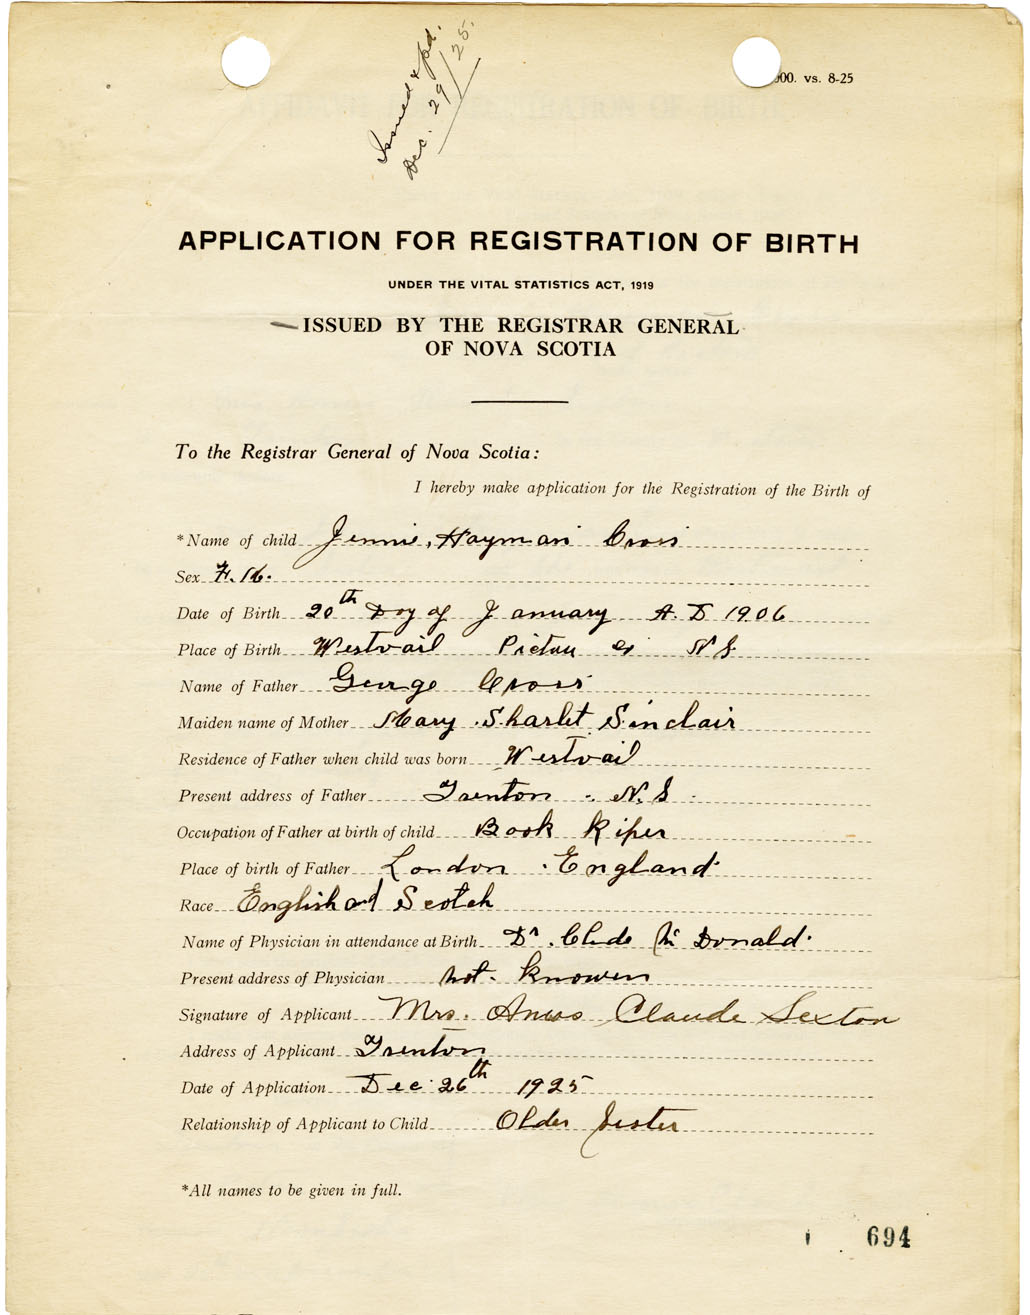 Issued & pd.
Dec. 29/25.
000. vs. 8-25
APPLICATION FOR REGISTRATION OF BIRTH
UNDER THE VITAL STATISTICS ACT, 1919
ISSUED BY THE REGISTRAR GENERAL
OF NOVA SCOTIA
To the Registrar General of Nova Scotia:
I hereby make application for the Registration of the Birth of
*Name of child Jennie, Hayman Cross
Sex
Date of Birth 20th Day of January A.D 1906
Place of Birth Westvail Pictou Co N S
Name of Father George Cross
Maiden name of Mother Mary Skarlet Sinclair
Residence of Father when child was born Westvail
Present address of Father Trenton N. S
Occupation of Father at birth of child Book Kiper
Place of birth of Father London England
Race English and Scotch
Name of Physician in attendance at Birth Dr. Clude Mc Donald
Present address of Physician not knowen
Signature of Applicant Mrs. Claude Sexton
Address of Applicant Trenton
Date of Application Dec 26th 1925
Relationship of Applicant to Child Older Sister
*All names to be given in full.
694